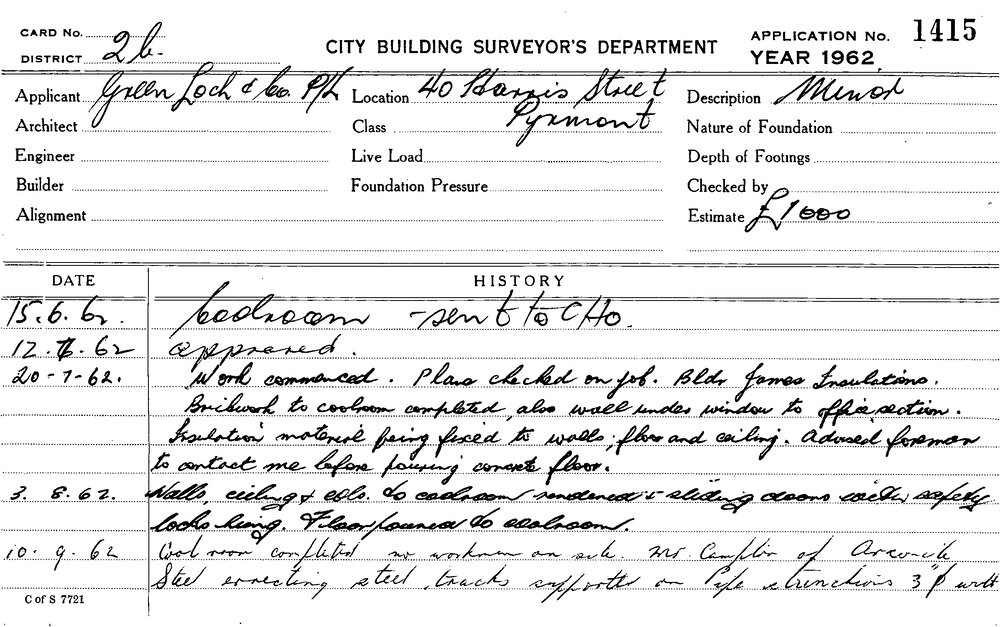 CARD No.
DISTRICT 2b.
CITY BUILDING SURVEYOR'S DEPARTMENT
APPLICATION No. 1415
YEAR 1962
Applicant Green Loch & Co. P/L Location 40 Harris Street Description Minor
Architect Class Pyrmont Nature of Foundation
Engineer Live Load Depth of Footings
Builder Foundation Pressure Checked by
Alignment Estimate £1000
DATE HISTORY
15.6.62. coolroom - sent to CHO.
12.7.62 approved.
20-7-62. Work commenced. Plans checked on job. Bldr James Insulations.
Brikwork to coolroom completed, also wall under window to office section.
Insulation material being fixed to walls, floor and ceiling. Advised foreman
to contact me before pouring concrete floor.
3. 8.62. Walls, cieling & cols. to coolroom rendered & sliding doors with safety
locks hung. Floor poured to coolroom.
10. 9. 62 Cool room completed no workmen on site. Mr. of
Steel errecting steel tracks supported on Pipe 3"ϕ with
C of S 7721